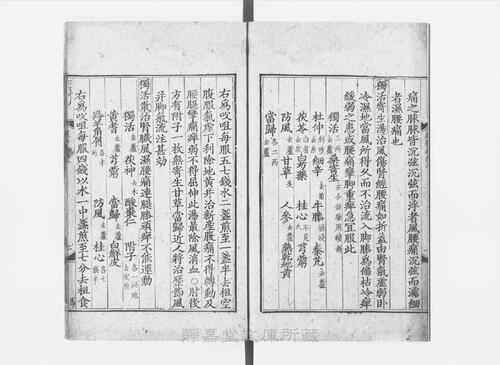 痛之脉脉皆沉弦沉弦而浮者風腰痛沉弦而濡細
者濕腰痛也
獨活寄生湯治風傷腎經腰痛如折蓋由腎氣虛弱卧
冷濕地當風所得久而不治流入脚膝為偏枯冷痺
緩弱之患或腰痛攣脚重痺急宜服此
獨活 桑寄生
杜仲 細辛 牛膝 秦艽
茯苓 白芍藥 桂心 芎藭
防風 甘草 人參 熟乾地黄
當歸 各二兩
右為㕮咀每服五七錢水二盞煎至一盞半去柤空
腹服氣虛下利除地黄并治新産腹痛不得轉動及
腰腿攣痛痺弱不得屈伸此湯最除風消血〇肘後
方有附子一枚無寄生甘草當歸近人將治歷節風
并脚氣流注甚効
獨活散治腎臟風濕腰痛連腿膝頑痺不能運動
獨活 茯神 附子
黄耆 芎藭 酸棗仁
當歸 白鮮皮
羚羊角 防風 桂心
右為㕮咀每服四錢以水一中盞煎至七分去柤食
靜嘉堂文庫所藏